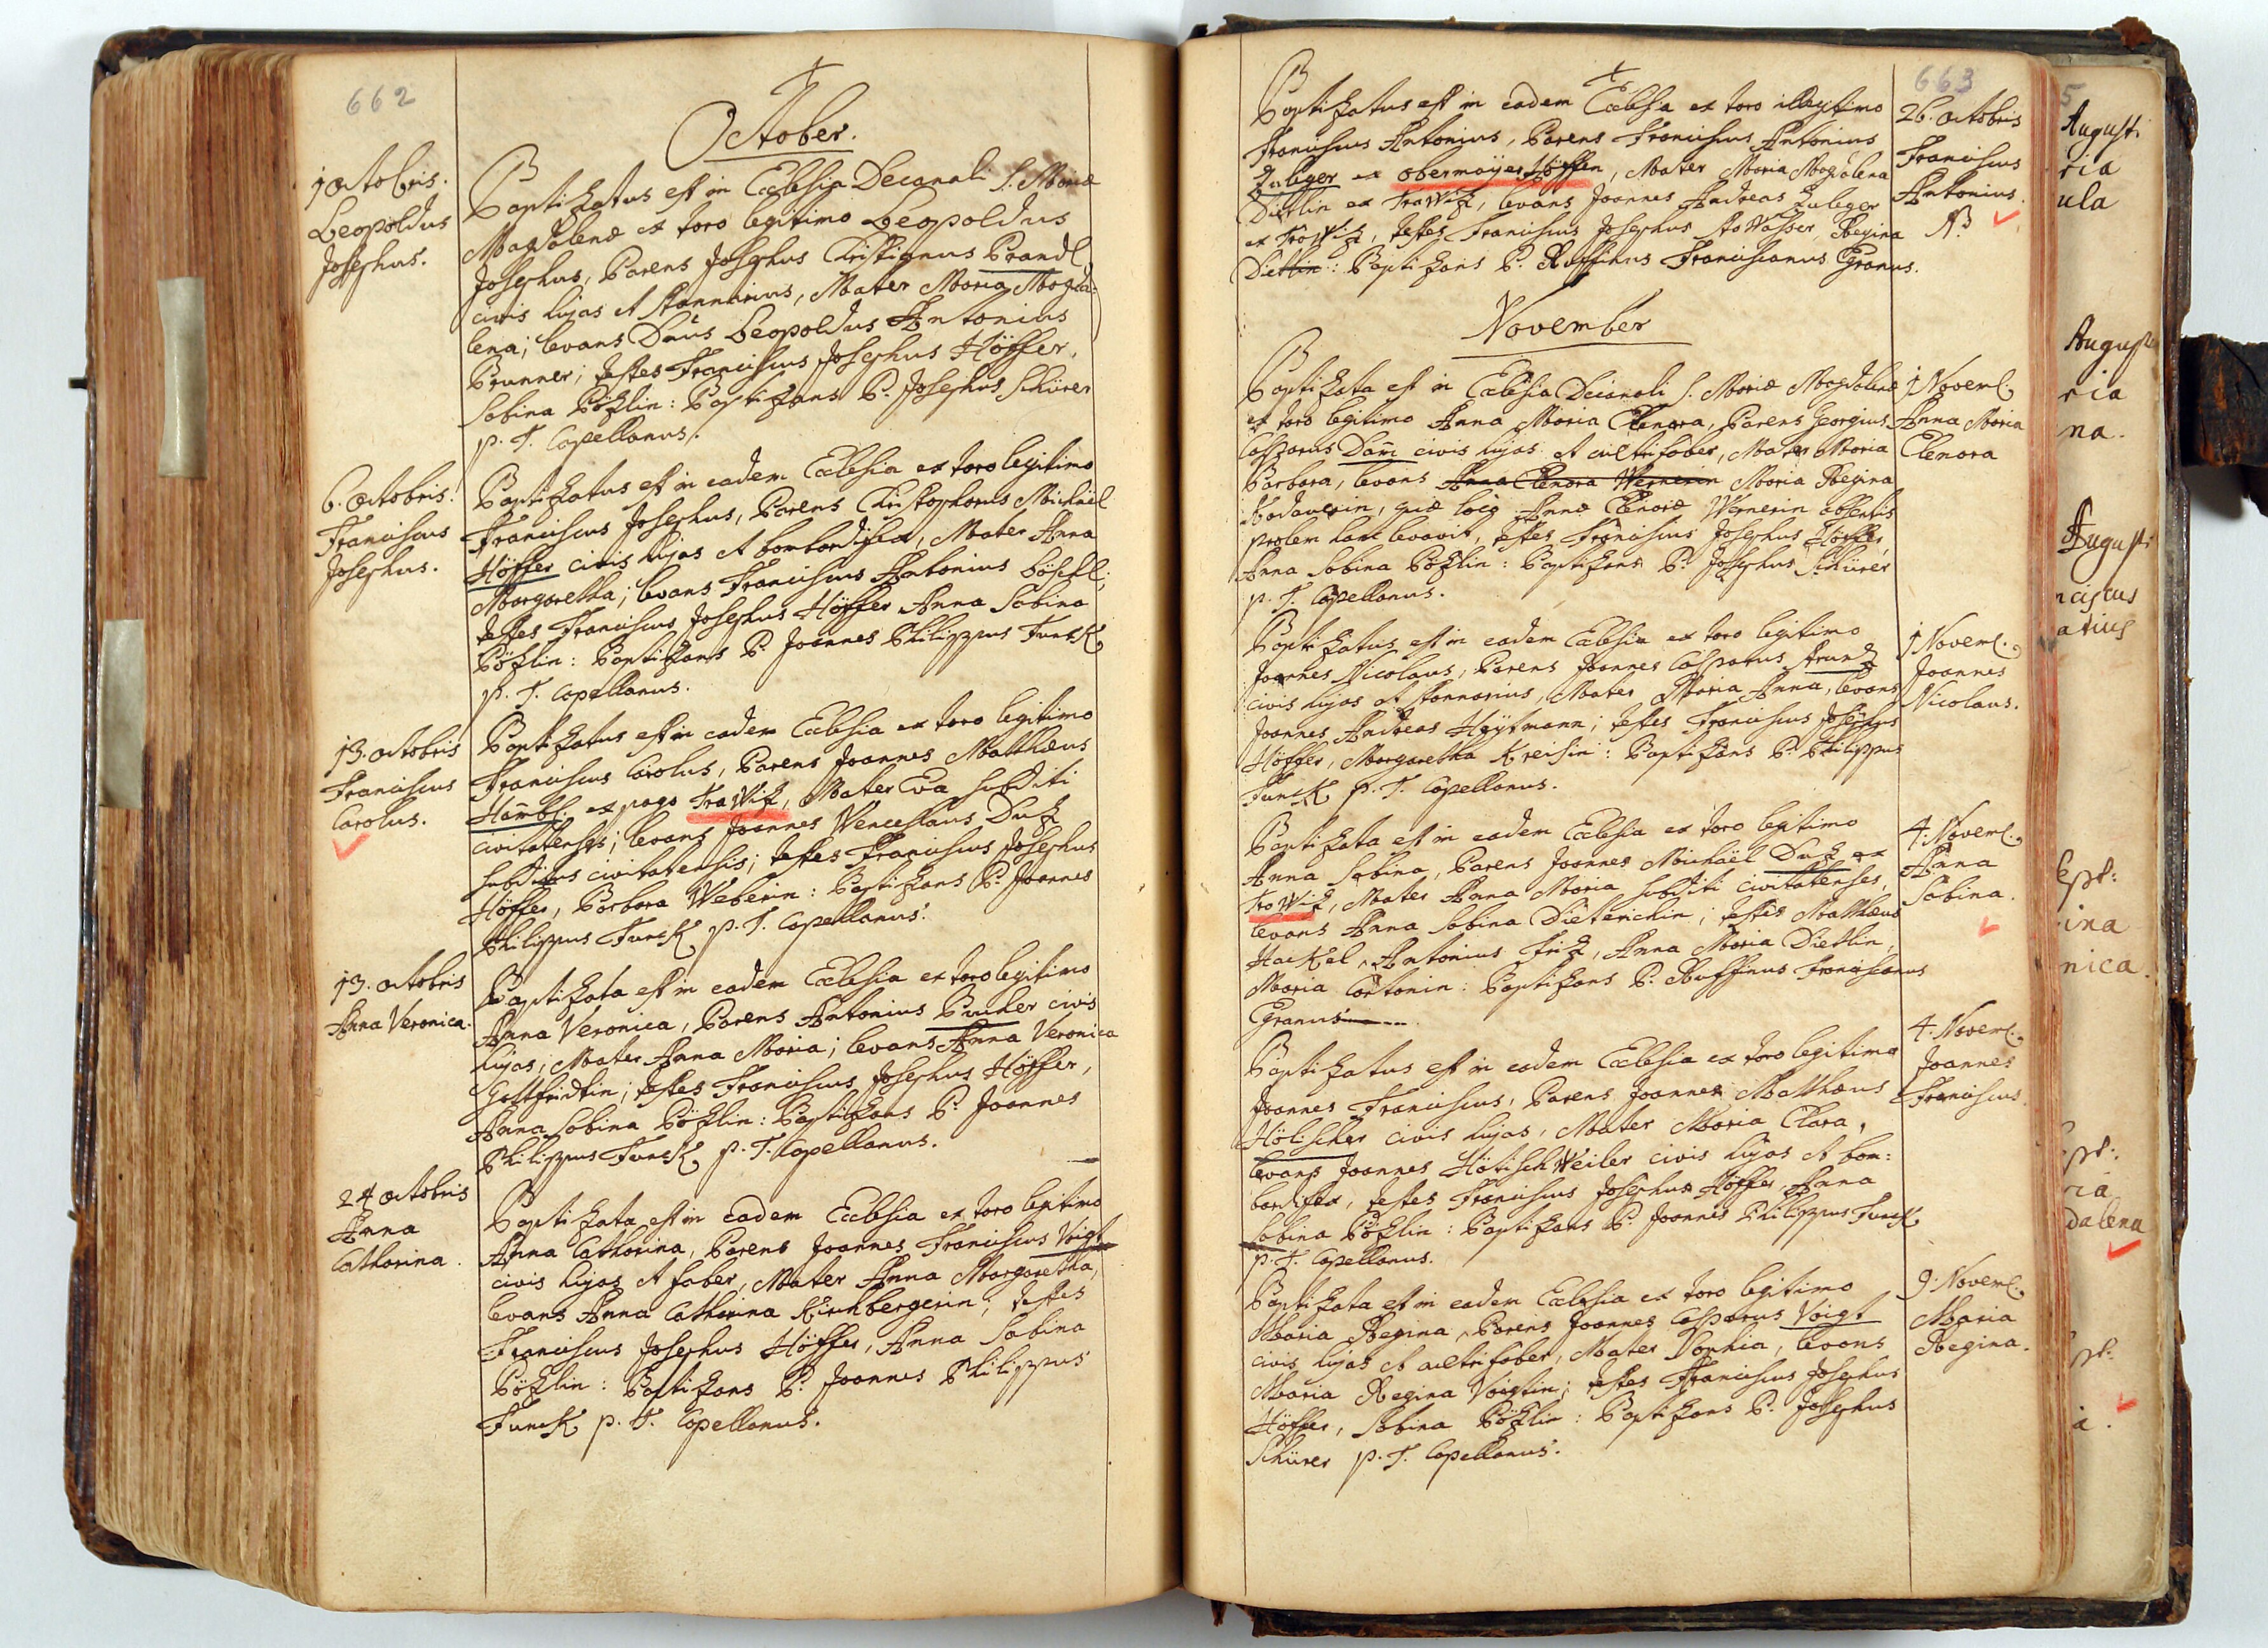 662
October.
1 octobris.
Leopoldus
Josephus.
Baptizatus est in Ecclesia Decanali S. Mariæ
Magdalenæ ex toro legitimo Leopoldus
Josephus, Parens Josephus Christianus Brandl
civis hujas et stannarius, Mater Maria Magda-
lena; levans Dnus Leopoldus Antonius
Brunner; testes Franciscus Josephus Höffer,
Sabina Pözlin: Baptizans P. Josephus Schürer
p. T. Capellanus.
6. octobris.
Franciscus
Josephus.
Baptizatus est in eadem Ecclesia ex toro legitimo
Franciscus Josephus, Parens Christophorus Michäel
Höffer civis hujas et bombardifex, Mater Anna
Margaretha; levans Franciscus Antonius Löschl;
testes Franciscus Josephus Höffer Anna Sabina
Pözlin: Baptizans P. Joannes Philippus Funck
p. T. Capellanus.
13. octobris
Franciscus
Carolus.
Baptizatus est in eadem Ecclesia ex toro legitimo
Franciscus Carolus, Parens Joannes Matthæus
Ham̄bl. ex pago Trawitz, Mater Eva subditi
civitatenses; levans Joannes Venceslaus Dutz
subditus civitatensis; testes Franciscus Josephus
Höffer, Barbara Weberin: Baptizans P. Joannes
Philippus Funck p. T. Capellanus.
13. octobris
Anna Veronica.
Baptizata est in eadem Ecclesia ex toro legitimo
Anna Veronica, Parens Antonius Bucher civis
hujas; Mater Anna Maria; levans Anna Veronica
Gottfridtin; testes Franciscus Josephus Höffer,
Anna Sabina Pözlin: Baptizans P. Joannes
Philippus Funck p. T. Capellanus.
24 octobris
Anna
Catharina.
Baptizata est in Eadem Ecclesia ex toro legitimo
Anna Catharina, Parens Joannes Franciscus Voigt
civis hujas et faber, Mater Anna Margaretha,
levans Anna Catharina Kirchbergerin; testes
Franciscus Josephus Höffer, Anna Sabina
Pözlin: Baptizans P. Joannes Philippus
Funck p. T. Capellanus.
663
Baptizatus est in eadem Ecclesia ex toro illegitimo
Franciscus Antonius, Parens Franciscus Antonius
Zuleger ex obermayers Höffen, Mater Maria Magdalena
Dietlin ex Trawitz, levans Joannes Andreas Zuleger
ex Trawitz, testes Franciscus Josephus StoWasser, Regina
Dietlin: Baptizans P. Ruffinus Franciscanus Granus.
26. octobris
Franciscus
Antonius.
NB
November
Baptizata est in Ecclesia Decanali S. Mariæ Magdalenæ
ex toro legitimo Anna Maria Elenora, Parens Georgius
Casparus Dam̄ civis hujas et cultrifaber, Mater Maria
Barbara, levans Anna Elenora Wernerin Maria Regina
Kodauerin, quæ loco Annæ Elenoræ Wernerin absentis
prolem hanc levavit, testes Franciscus Josephus Höffer,
Anna Sabina Pözlin: Baptizans P. Josephus Schürer
p. T. Capellanus.
1 Novem̄b.
Anna Maria
Elenora
Baptizatus est in eadem Ecclesia ex toro legitimo
Joannes Nicolaus, Parens Joannes Casparus
civis hujas et stannarius, Mater Maria Anna, levans
Joannes Andreas Heytmann; testes Franciscus Josephus
Höffer, Margaretha Kreisin: Baptizans P. Philippus
Funck p. T. Capellanus.
1 Novem̄b.
Joannes
Nicolaus.
Baptizata est in eadem Ecclesia ex toro legitimo
Anna Sabina, Parens Joannes Michäel Dutz ex
Trawitz, Mater Anna Maria subditi civitatenses,
levans Anna Sabina Dieterichin; testes Matthæus
Hackel, Antonius Fritz, Anna Maria Dietlin,
Maria Cartonin: Baptizans P. Ruffinus Franciscanus
Granus.
4. Novem̄b.
Anna
Sabina.
Baptizatus est in eadem Ecclesia ex toro legitimo
Joannes Franciscus, Parens Joannes Matthæus
Hölischer civis hujas, Mater Maria Clara,
levans Joannes HötischWeiler civis hujas et bom:
bardifex, testes Franciscus Josephus Höffer, Anna
Sabina Pözlin: Baptizans P. Joannes Philippus Funck
p. T. Capellanus.
4. Novem̄b.
Joannes
Franciscus.
Baptizata est in eadem Ecclesia ex toro legitimo
Maria Regina, Parens Joannes Casparus Voigt
civis hujas et cultrifaber, Mater Sophia, levans
Maria Regina Voigtin; testes Franciscus Josephus
Höffer, Sabina Pözlin: Baptizans P. Josephus
Schürer p. T. Capellanus.
9. Novem̄b.
Maria
Regina.
5
Augusti
ria
ula
Augusti
ria
na.
Augusti
nciscus
atius
Sept:
ina
nica.
Sept:
ria
dalena
pt:
a.